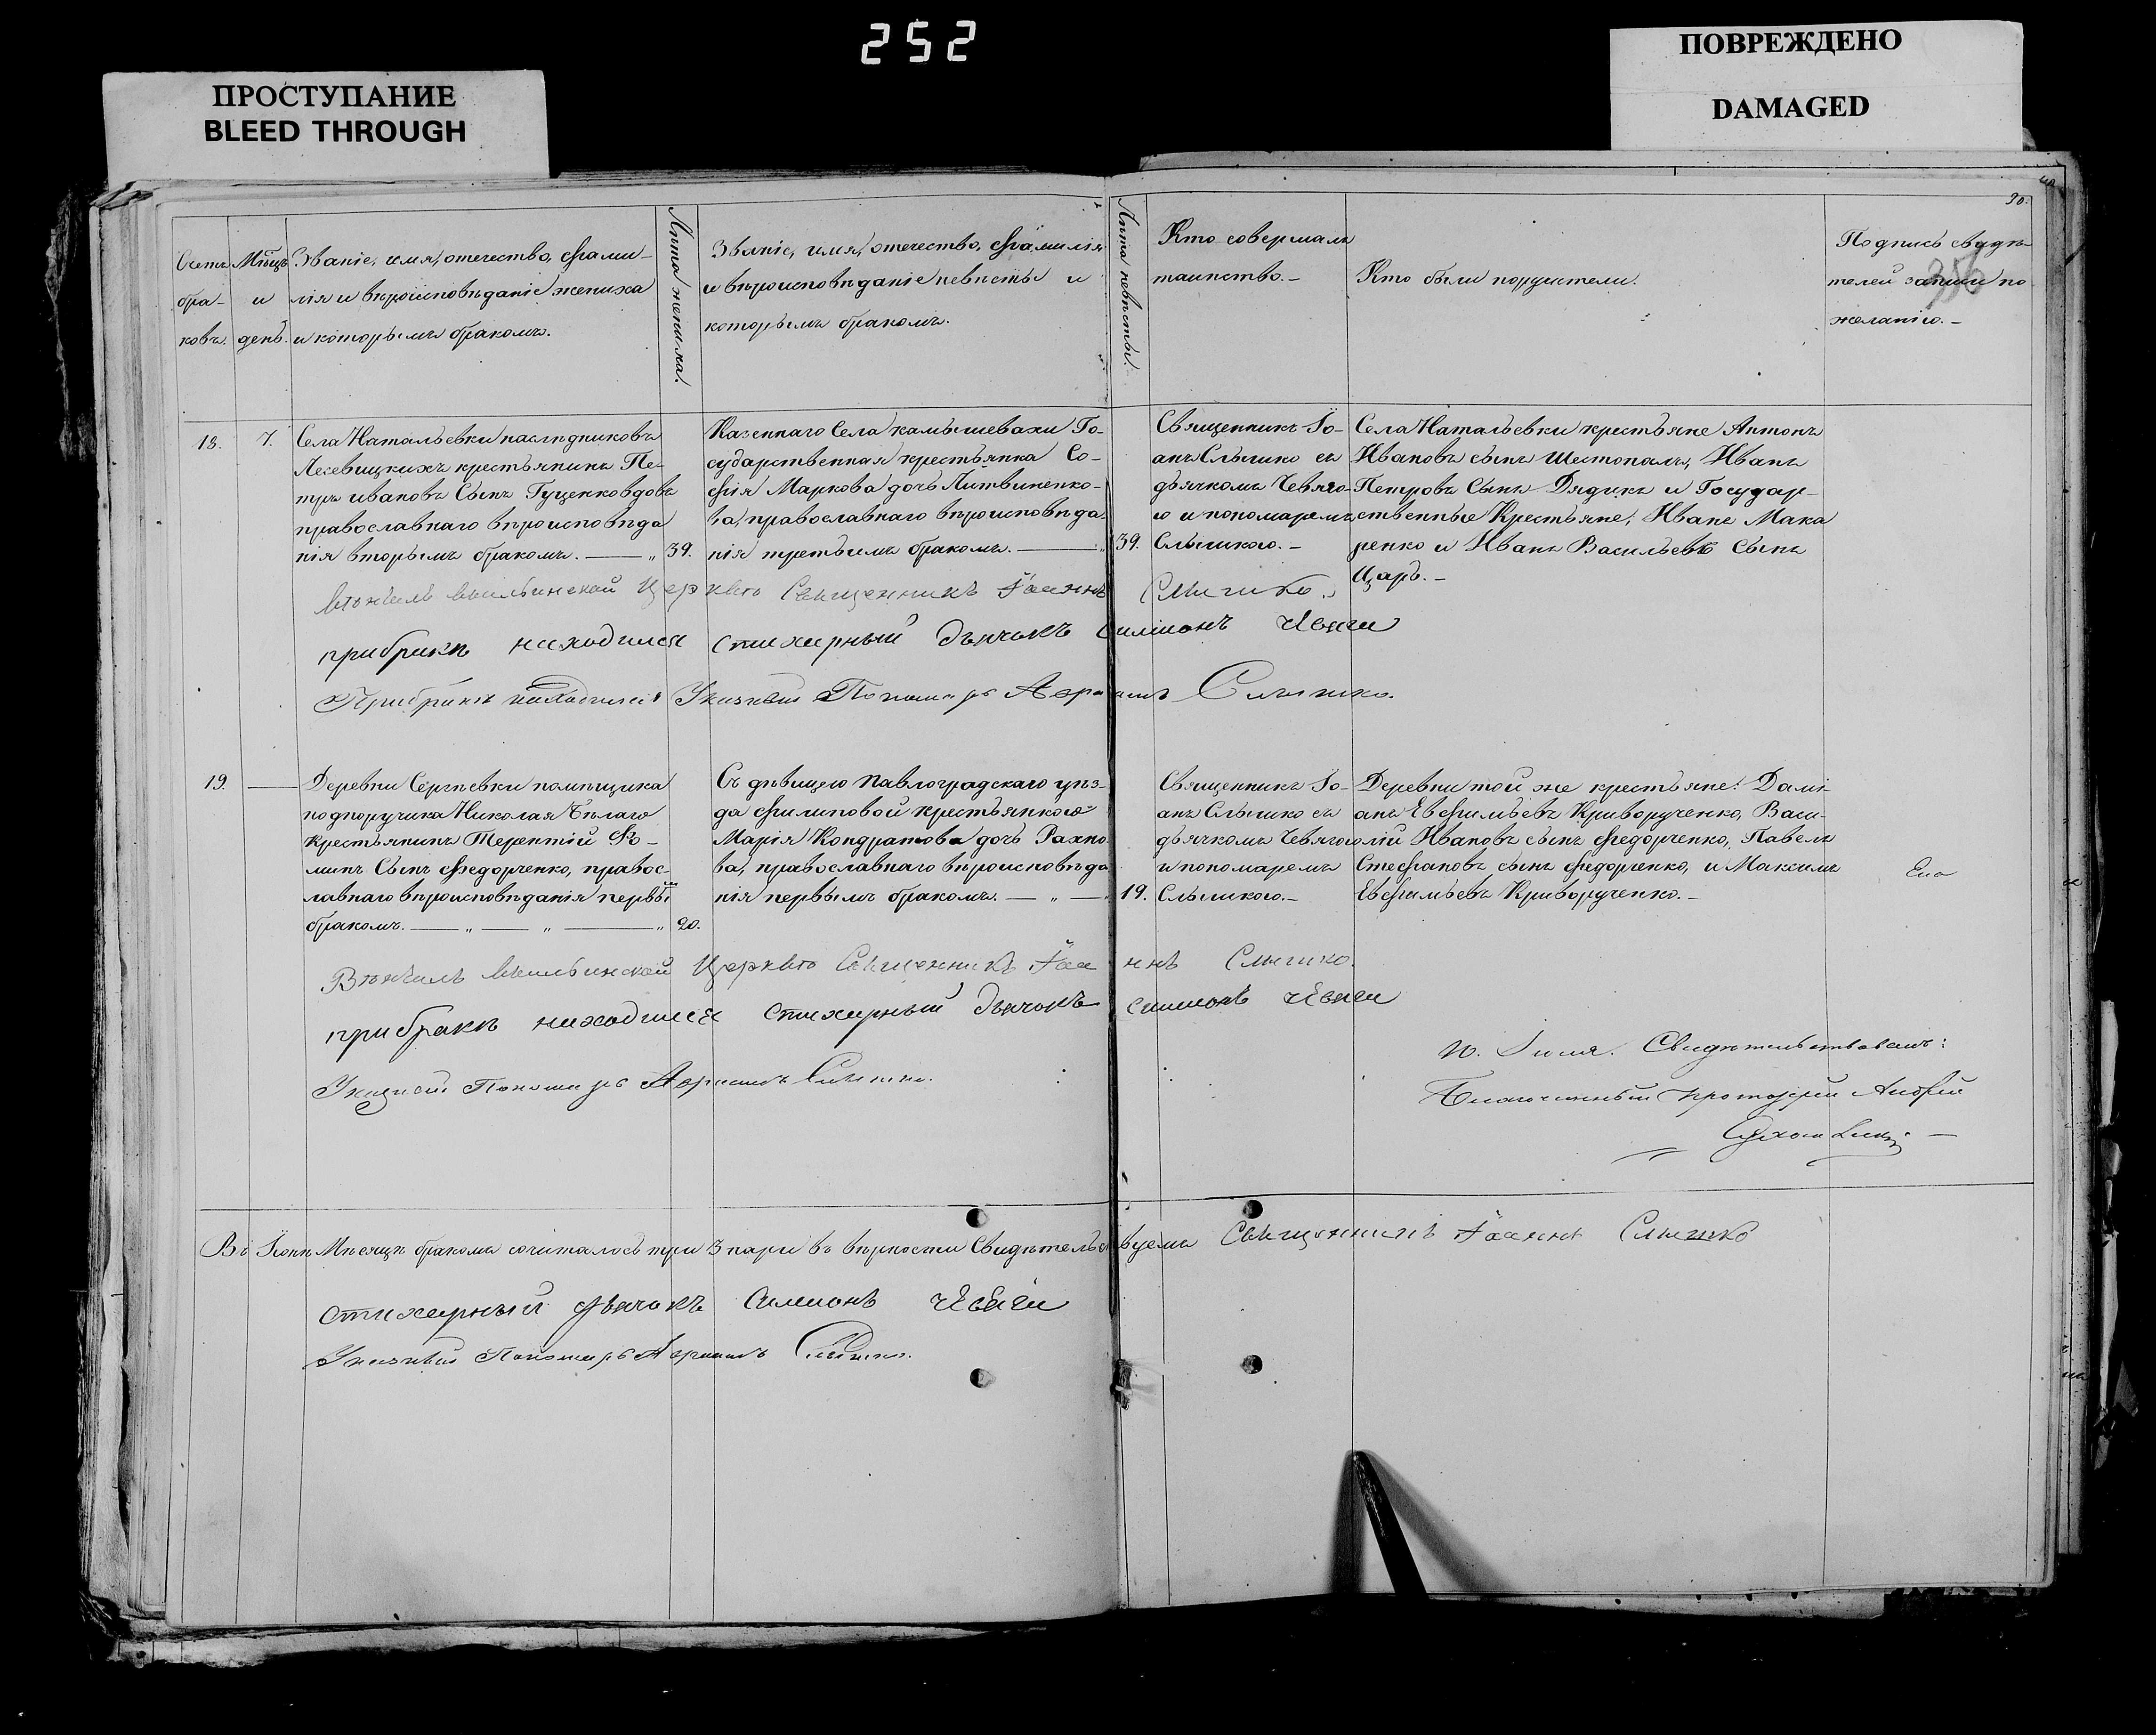 252
ПРОСТУПАНИЕ
BLEED THROUGH
ПОВРЕЖДЕНО
DAMAGED
30.
356
Счетъ
бра-
ковъ.
Мѣцъ
и
день.
Званіе, имя, отечество, фами-
лія и вѣроисповѣданіе жениха
и которымъ бракомъ.
Лѣта жениха.
Званіе, имя, отечество, фамилія
и вѣроисповѣданіе невѣсты и
которымъ бракомъ.
Лѣта невѣсты.
Кто совершалъ
таинство.-
Кто были поручители.
Подпись свидѣ-
телей записи по
желанію.-
18.
7.
Села Натальевки наслѣдниковъ
Лесевицкихъ крестьянинъ Пе-
тръ ивановъ Сынъ Гуценко вдовъ
православнаго вѣроисповѣда
нія вторымъ бракомъ. — „
39.
Казеннаго Села камышевахи Го-
сударственная крестьянка Со-
фія Маркова дочь Литвиненко-
ва, православнаго вѣроисповѣда-
нія третьимъ бракомъ. —
39.
Священникъ Іо-
анъ Слышко съ
дьячкомъ Чевяго-
ю и пономаремъ
Слышкою.-
Села Натальевки крестьяне Антонъ
Ивановъ сынъ Шестопалъ, Иванъ
Петровъ Сынъ Дядикъ и Государ-
ственные Крестьяне, Иванъ Мака
ренко и Иванъ Васильевъ Сынъ
Царъ.-
Священникъ Іоаннъ Слышко.
при бракѣ находился стихарный дьячокъ Симионъ Чевяги
При бракѣ находился Указный Пономарь Слышко.
19.
—
Деревни Сергѣевки помѣщика
подпоручика Николая Бѣлаго
Крестьянинъ Терентій Фо-
минъ Сынъ Федорченко, правос-
лавнаго вѣроисповѣданія первы
бракомъ. — „ — „ — „
20.
Съ дѣвицею Павлоградскаго уѣз-
да Филиповой крестьянкою
Марія Кондратова дочь Рахно
ва, православнаго вѣроисповѣда
нія первымъ бракомъ. — „ —
19.
Священникъ Іо-
анъ Слышко съ
дьячкомъ Чевягою
и пономаремъ
Слышкою.-
Деревни той же крестьяне: Далі-
анъ Евфимьевъ Криворученко, Васи-
лій Ивановъ сынъ Федорченко, Павелъ
Стефановъ сынъ Федорченко, и Максимъ
Евфимьевъ Криворученко.-
Вѣнчалъ Священникъ Іоаннъ Слышко.
при бракѣ находился стихарный дьячокъ Симионъ Чевяги
Указный Пономарь Слышко.
Свидѣтельствовалъ:
Благочинный протоіерей Андрей
Въ Іюнѣ Мѣсяцѣ бракомъ сочиталось три 3 пари въ вѣрности Свидѣтельствуемъ Священникъ Іоаннъ Слышко
стихарный дьячокъ Симионъ Чевяги
Указный Пономарь Слышко.